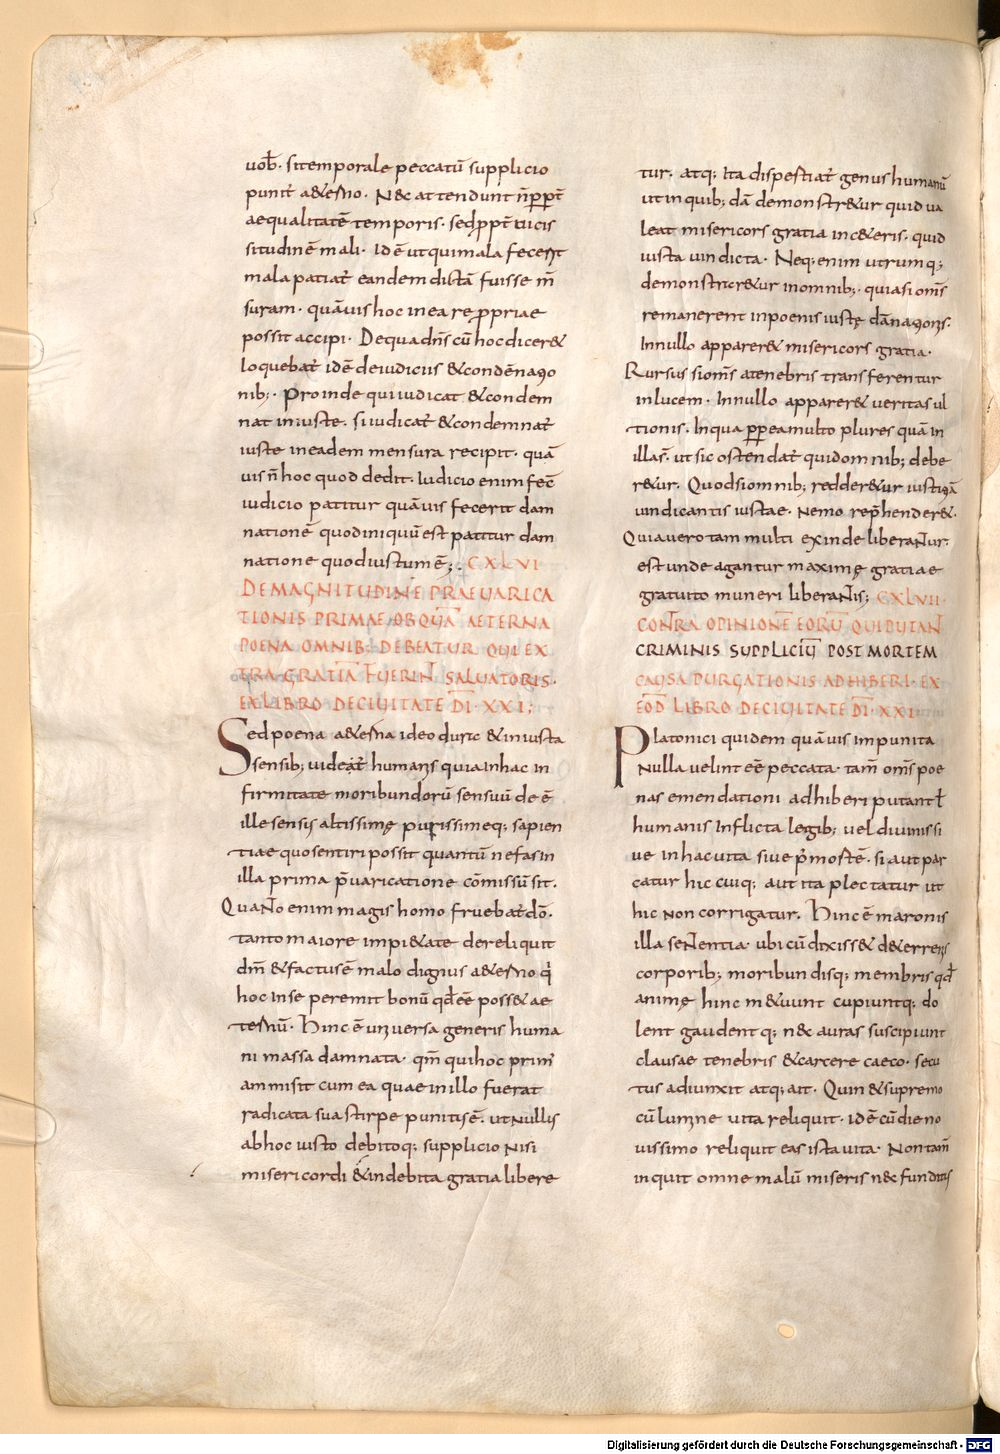 uob̄· si temporale peccatū supplicio
punit̄ a&erno· N&c attendunt n̄ ꝓpt̄
aequalitatē temporis· sed ꝓpt̄ uicis
situdinē mali· Idē ut qui mala fecerit
mala patiat̄ eandem dictā fuisse m̄
suram· quāuis hoc in ea re ꝓpriae
possit accipi· De qua dn̄s cū hoc dicer&
loquebat̄ idē de iudiciis & condēnatio
nib;· Proinde qui iudicat & condem
nat iniuste· si iudicat̄ & condemnat̄
iuste in eadem mensura recipit· quā
uis n̄ hoc quod dedit· Iudicio enim fec̄
iudicio patitur quāuis fecerit dam
nationē quod iniquū est patitur dam
natione quod iustum ē;· CXLVI
DE MAGNITUDINE PRAEUARICA
TIONIS PRIMAE OB QUĀ AETERNA
POENA OMNIB; DEBEATUR QUI EX
TRA GRATIĀ FUERIN̄ SALUATORIS·
EX LIBRO DE CIUITATE DĪ· XXI;
Sed poena a&erna ideo dura & iniusta
sensib; uideat̄ humanis quia in hac in
firmitate moribundorū sensuū deē
ille sensus altissimę purissimeq; sapien
tiae quo sentiri possit quantū nefas in
illa prima p̄uaricatione cōmissū sit·
Quanto enim magis homo fruebat̄ dō·
tanto maiore impi&ate dereliquit
dm̄ & factus ē malo dignus a&erno q̇
hoc in se peremit bonū qđ eē poss& ae
ternū· Hinc ē uniuersa generis huma
ni massa damnata· qm̄ qui hoc prim̄
ammisit cum ea quae in illo fuerat
radicata sua stirpe punitus ē· ut nullus
ab hoc iusto debitoq; supplicio nisi
misericordi & indebita gratia libere
tur; atq; ita dispertiat̄ genus humanū
ut in quib;dā demonstr&ur quid ua
leat misericors gratia in c&eris· quid
iusta uindicta· Neq; enim utrumq;
demonstrar&ur in omnib;· quia si om̄s
remanerent in poenis iustę dānationis·
In nullo apparer& misericors gratia·
Rursus si om̄s a tenebris transferentur
in lucem· In nullo apparer& ueritas ul
tionis· In qua ꝓpea multo plures quā in
illa s̄· ut sic ostendat̄ quid omnib; debe
r&ur· Quod si omnib; redder&ur iustitiā
uindicantis iustae· nemo rep̄hender&·
Quia uero tam multi exinde liberantur·
est unde agantur maximę gratiae
gratuito muneri liberantis; CXLVII·
CONTRA OPINIONĒ EORŪ QUI PUTAN̄
CRIMINIS SUPPLICIŪ POST MORTEM
CAUSA PURGATIONIS ADHIBERI· EX
EOD̄ LIBRO DE CIUITATE DĪ· XXI
Platonici quidem quāuis impunita
nulla uelint eē peccata· tam̄ om̄s poe
nas emendationi adhiberi putant ƚ
humanis inflicta legib; uel diuinis si
ue in hac uita siue p̄ mortē· si aut par
catur hic cuiq; aut ita plectatur ut
hic non corrigatur· Hinc ē maronis
illa sententia· ubi cū dixiss& de terrenis
corporib; moribundisq; membris qđ
animę hinc m&uunt cupiuntq; do
lent gaudentq; n&c auras suscipiunt
clausae tenebris & carcere caeco· secu
tus adiunxit atq; ait· Quin & supremo
cū lumine uita reliquit· id ē cū die no
uissimo reliquit eas ista uita· Non tam̄
inquit omne malū miseris n&c funditus